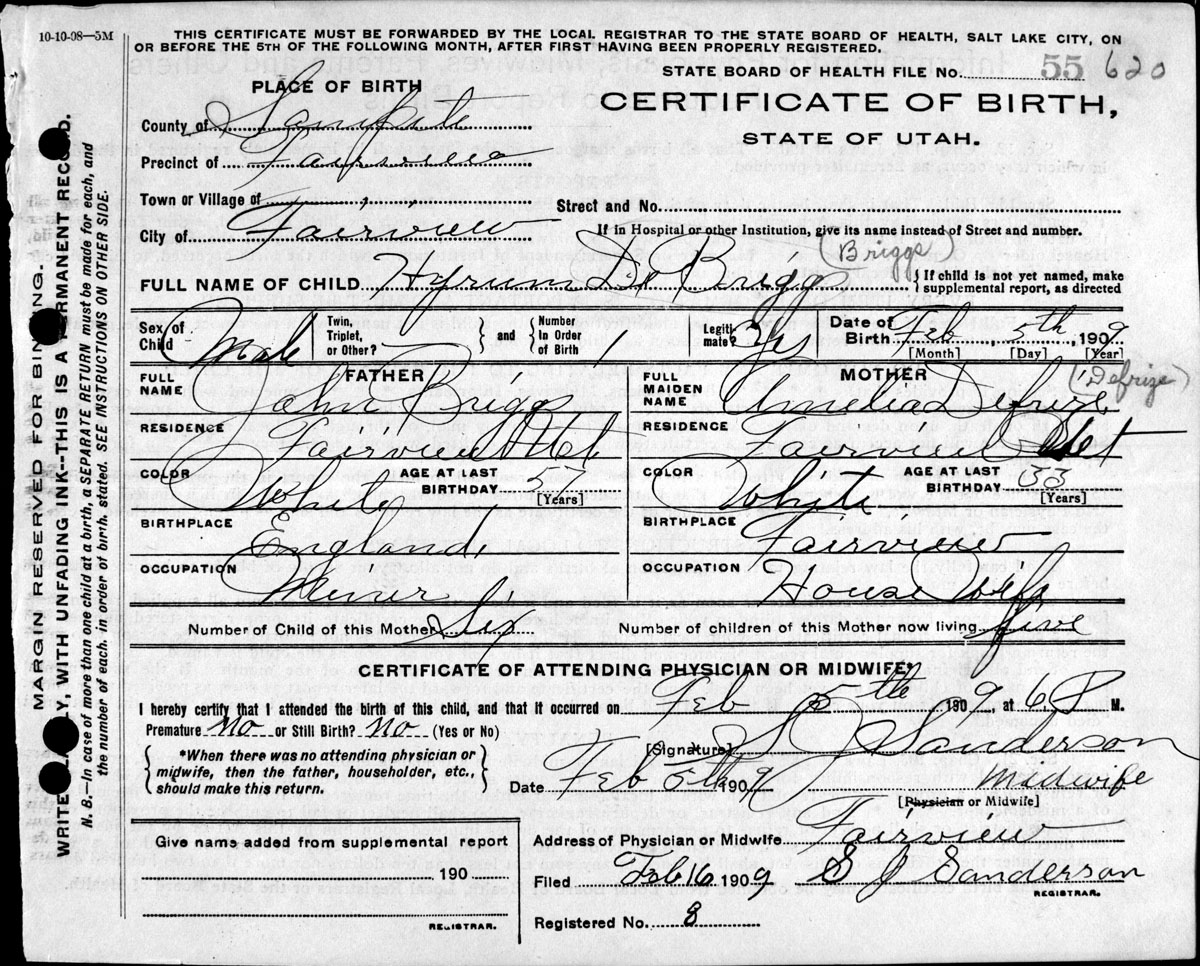 10-10-98—5M
THIS CERTIFICATE MUST BE FORWARDED BY THE LOCAL REGISTRAR TO THE STATE BOARD OF HEALTH, SALT LAKE CITY, ON
OR BEFORE THE 5TH OF THE FOLLOWING MONTH, AFTER FIRST HAVING BEEN PROPERLY REGISTERED.
STATE BOARD OF HEALTH FILE NO. 55 620
PLACE OF BIRTH
CERTIFICATE OF BIRTH,
STATE OF UTAH.
County of Sanpete
Precinct of Fairview
Town or Village of
Street and No.
City of Fairview
If in Hospital or other Institution, give its name instead of Street and number.
(Briggs)
FULL NAME OF CHILD Hyrum De Briggs
{ If child is not yet named, make
supplemental report, as directed
Sex of Child Male
Twin, Triplet, or Other? — } and { Number In Order of Birth
Legitimate? Yes
Date of Birth Feb, 5th, 1909
[Month] [Day] [Year]
FATHER
FULL NAME John Briggs
RESIDENCE Fairview Utah
COLOR White
AGE AT LAST BIRTHDAY 57
[Years]
BIRTHPLACE England,
OCCUPATION Miner
MOTHER
(Defrize)
FULL MAIDEN NAME Amelia Defrize
RESIDENCE Fairview
COLOR White
AGE AT LAST BIRTHDAY 33
[Years]
BIRTHPLACE Fairview
OCCUPATION House Wife
Number of Child of this Mother Six
Number of children of this Mother now living five
CERTIFICATE OF ATTENDING PHYSICIAN OR MIDWIFE*
I hereby certify that I attended the birth of this child, and that it occurred on Feb 5th 1909, at 6 P M.
Premature No or Still Birth? No (Yes or No)
{ *When there was no attending physician or
midwife, then the father, householder, etc.,
should make this return. }
[Signature] S J Sanderson
Date Feb 5th 1909
Midwife
[Physician or Midwife]
Give name added from supplemental report
190
REGISTRAR.
Address of Physician or Midwife Fairview
Filed Feb 16 1909 S J Sanderson
REGISTRAR.
Registered No. 8
MARGIN RESERVED FOR BINDING.
WRITE PLAINLY, WITH UNFADING INK—THIS IS A PERMANENT RECORD.
N. B.—In case of more than one child at a birth, a SEPARATE RETURN must be made for each, and
the number of each, in order of birth, stated. SEE INSTRUCTIONS ON OTHER SIDE.